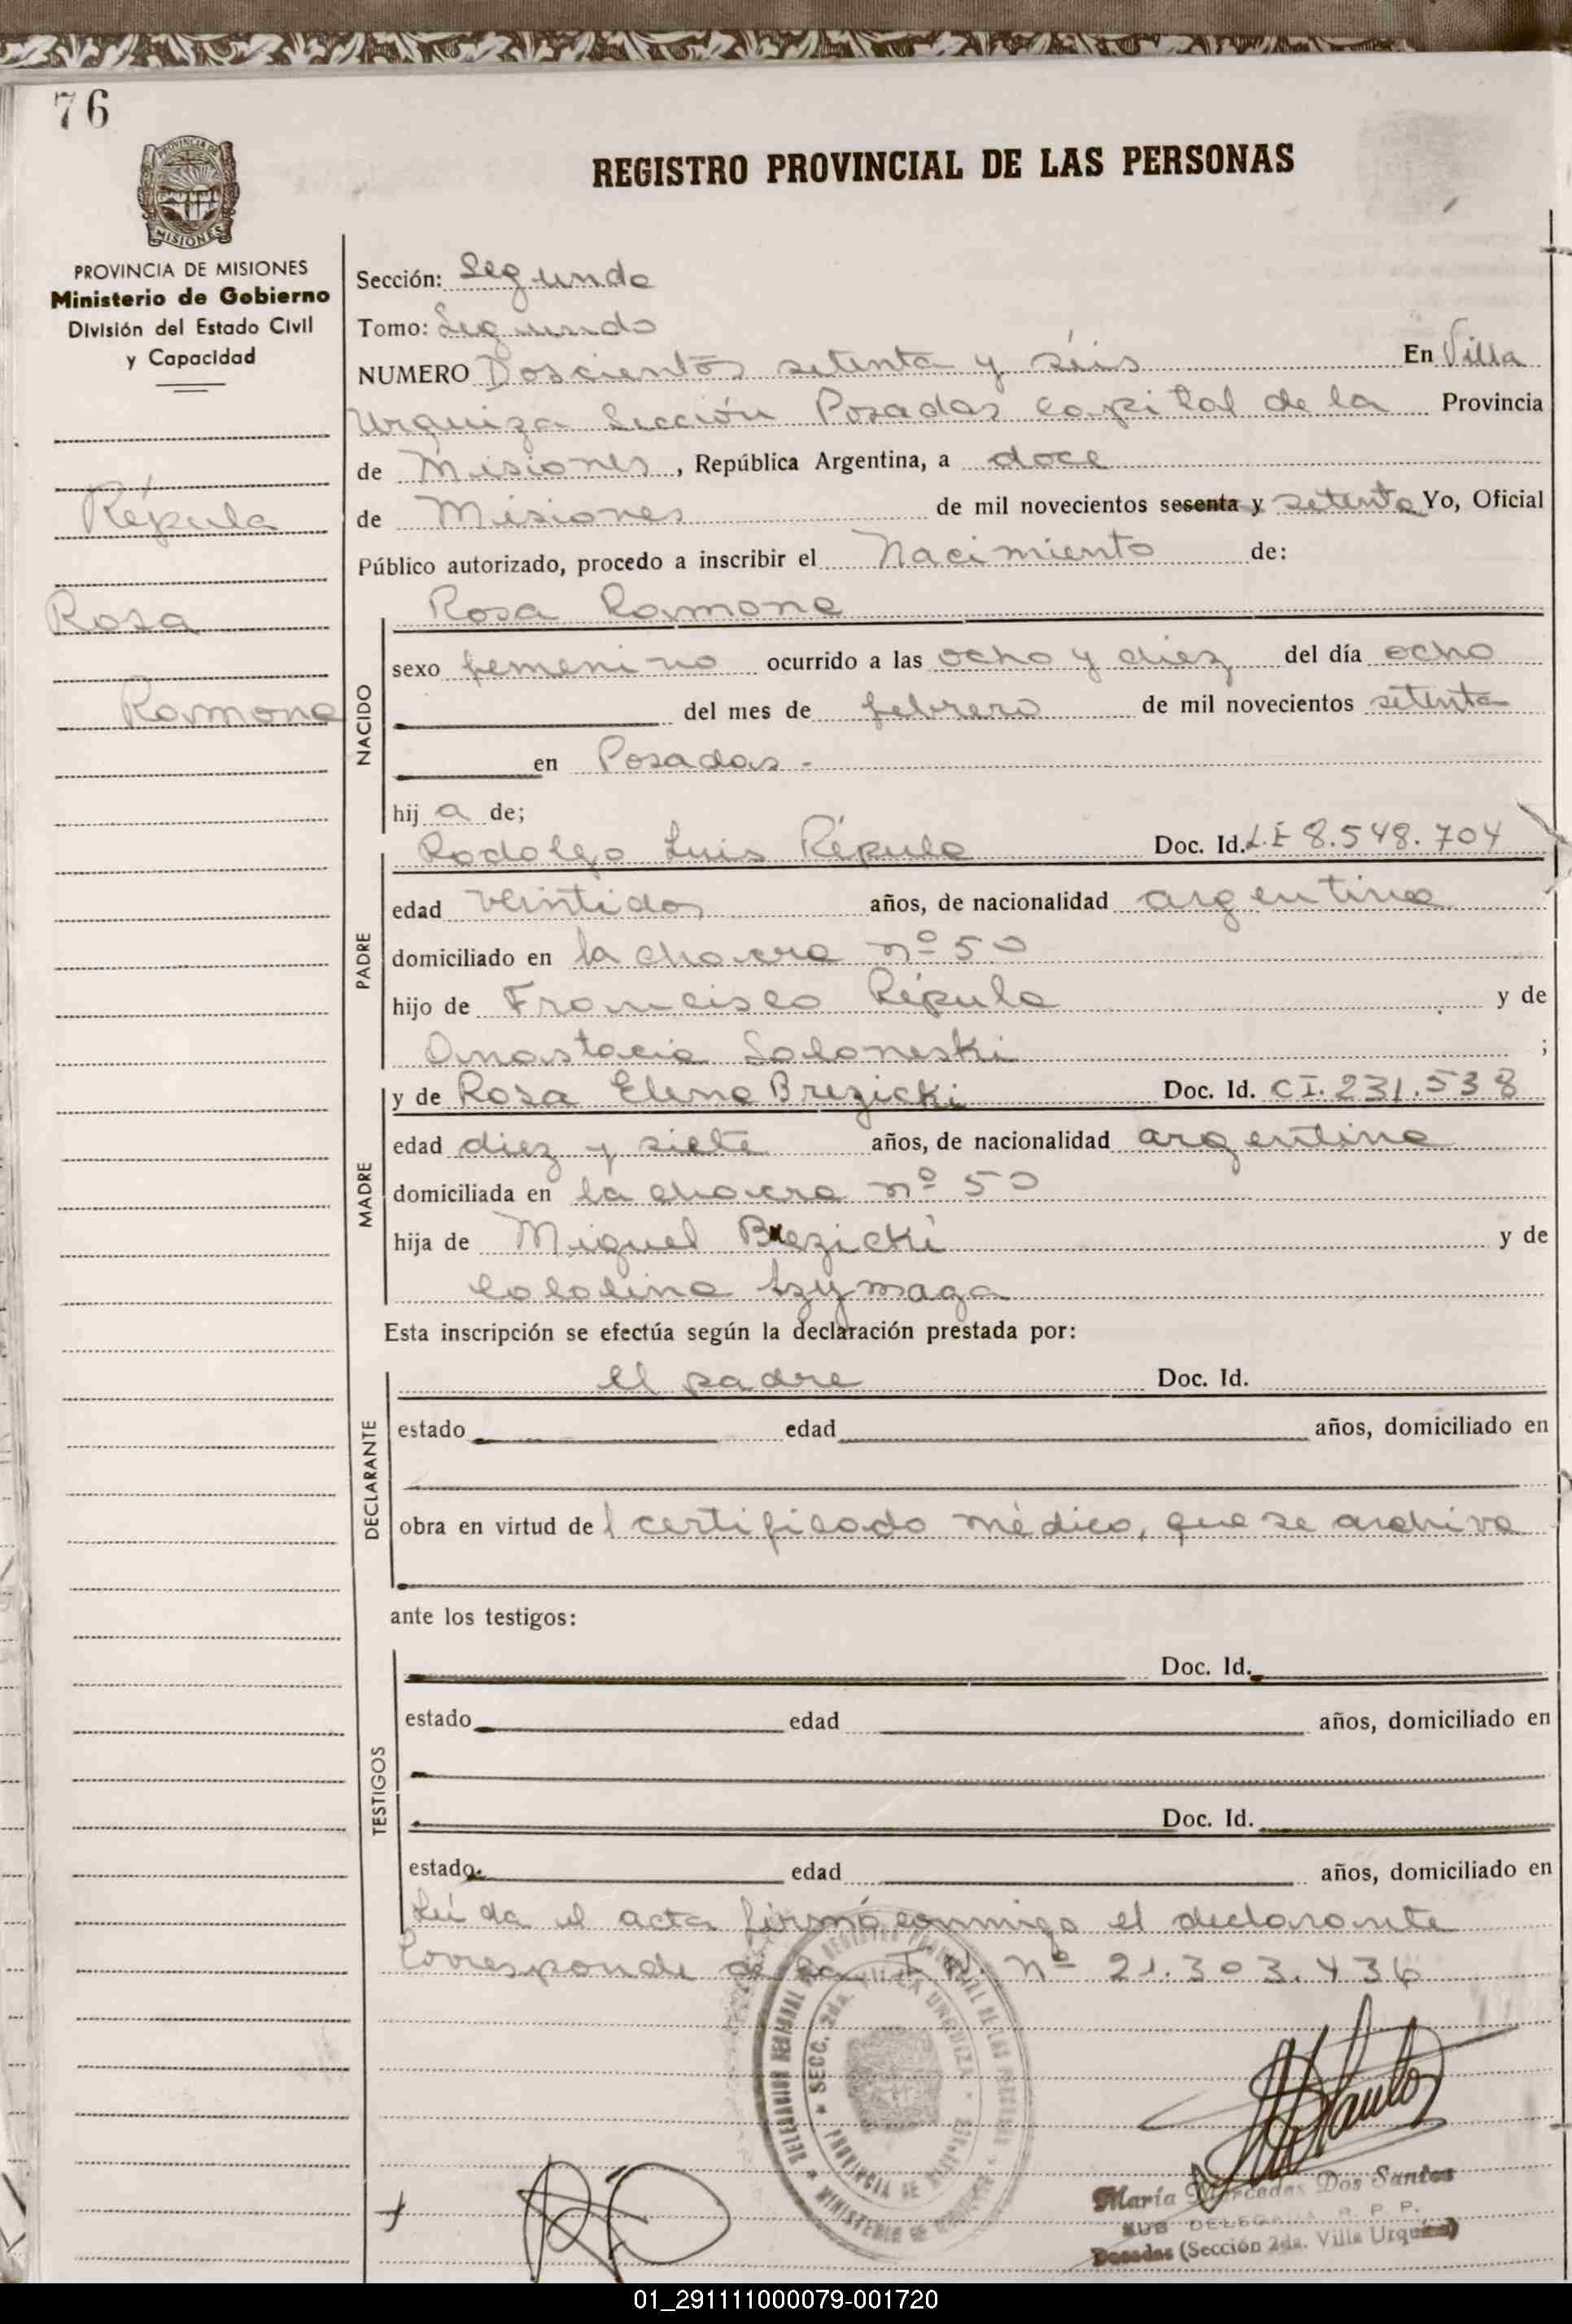 76
PROVINCIA DE
MISIONES
REGISTRO PROVINCIAL DE LAS PERSONAS
PROVINCIA DE MISIONES
Ministerio de Gobierno
División del Estado Civil
y Capacidad
Répula
Rosa
Ramona
Sección: Segunda
Tomo: Segundo
NUMERO Doscientos setenta y séis En Villa
Urquiza Sección Posadas capital de la Provincia
de Misiones, República Argentina, a doce
de Misiones de mil novecientos sesenta y setenta Yo, Oficial
Público autorizado, procedo a inscribir el Nacimiento de:
Rosa Ramona
NACIDO
sexo femenino ocurrido a las ocho y diez del día ocho
del mes de febrero de mil novecientos setenta
en Posadas -
hij a de;
Rodolfo Luis Répula Doc. Id. L.E 8.548.704
PADRE
edad veintidos años, de nacionalidad argentina
domiciliado en la chacra nº 50
hijo de Francisco Répula y de
Anastacia Soloneski ;
y de Rosa Elena Brezicki Doc. Id. CI. 231.538
MADRE
edad diez y siete años, de nacionalidad argentina
domiciliada en la chacra nº 50
hija de Miguel Brezicki y de
Carolina
Esta inscripción se efectúa según la declaración prestada por:
el padre Doc. Id.
DECLARANTE
estado edad años, domiciliado en
obra en virtud de l certificado médico, que se archiva
ante los testigos:
Doc. Id.
TESTIGOS
estado edad años, domiciliado en
Doc. Id.
estado edad años, domiciliado en
Leída el acta firmó conmigo el declarante
Corresponde nº 21.303.436
DELEGACION REGIONAL DE REGISTRO PROVINCIAL DE LAS PERSONAS
SECC. 2da. VILLA URQUIZA
PROVINCIA DE MISIONES
MINISTERIO DE
María Mercedes Dos Santos
SUB DELEGADA R. P. P.
Posadas (Sección 2da. Villa Urquiza)
01_291111000079-001720